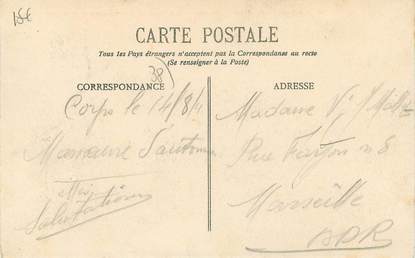 15€
CARTE POSTALE
Tous les Pays étrangers n'acceptent pas la Correspondance au recto
(Se renseigner à la Poste)
38
CORRESPONDANCE
Corps le 14/8/11
Mes
Salutations
ADRESSE
Madame
Rue n 8
Marseille
BDR